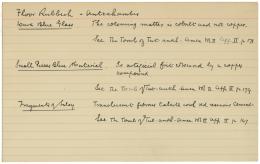 Floor Rubbish - Antechamber
Blue Glass The colouring matter is cobalt and not copper.
See The Tomb of Tut-ankh-Amen Vol II App. II p.
Small Pieces Blue Material Is artificial frit coloured by a copper
compound
See The Tomb of Tut-ankh-Amen Vol II App. II p.
Fragments of Inlay Translucent fibrous Calcite and red cement.
See The Tomb of Tut-ankh-Amen Vol II App. II p. 167